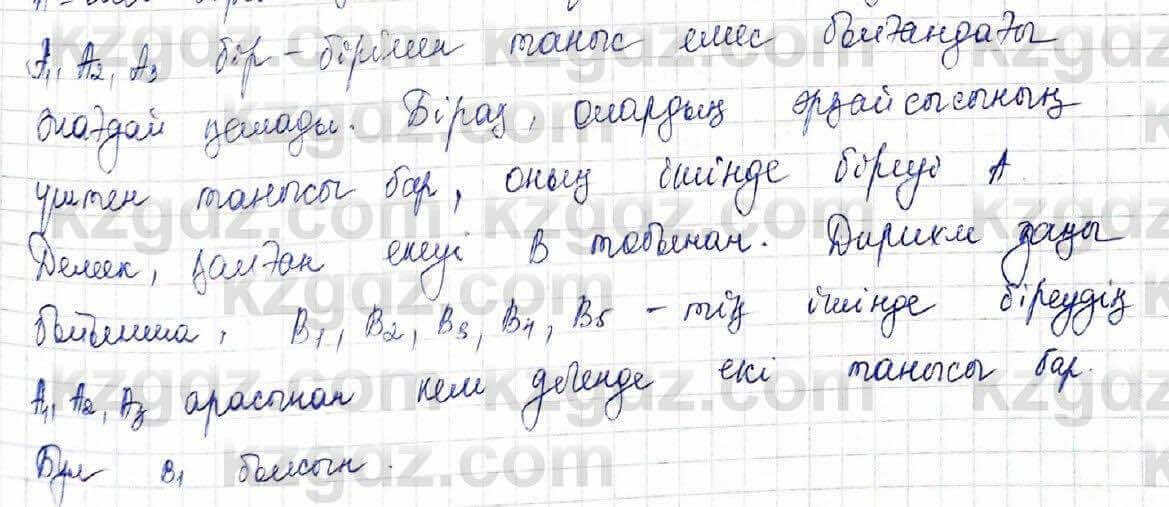 A₁, A₂, A₃ бір-бірімен таныс емес болғандағы
жағдай қалады. Бірақ, олардың әрқайсысының
үштен танысы бар, оның ішінде біреуі A
Демек, қалған екеуі B тобынан. Дирихле заңы
бойынша, B₁, B₂, B₃, B₄, B₅ - тің ішінде біреудің
A₁, A₂, A₃ арасынан кем дегенде екі танысы бар.
Бұл B₁ болсын.
kzgdz.com